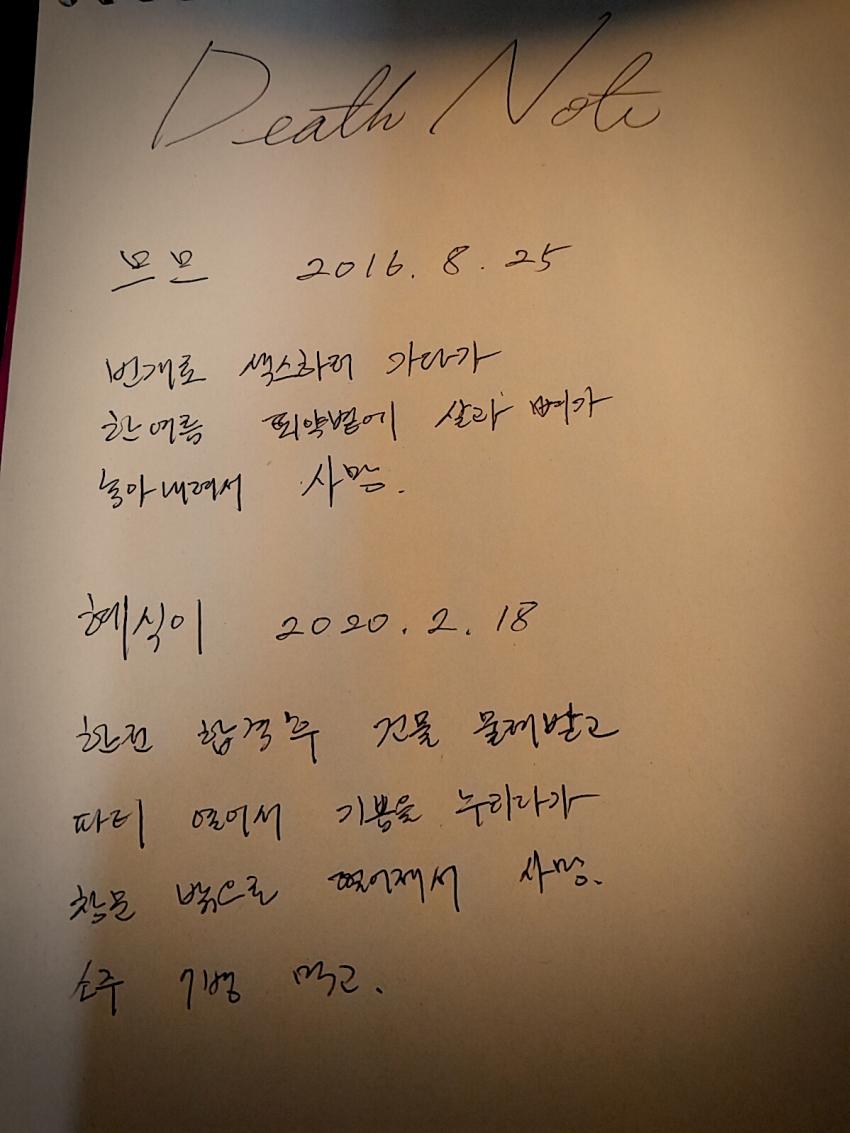 Death Note
모모 2016. 8. 25
번개로 섹스하러 가다가
한여름 뙤약볕에 살과 뼈가
녹아내려서 사망.
혜식이 2020. 2. 18
한전 합격 후 건물 물려받고
파티 열어서 기쁨을 누리다가
창문 밖으로 떨어져서 사망.
소주 7병 먹고.